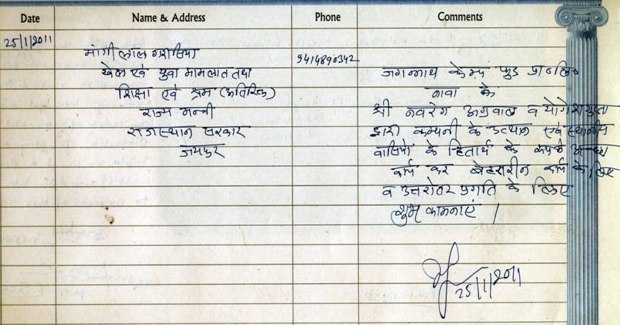 Date Name & Address Phone Comments
25/1/2011
मांगी लाल गरासिया 9414890342
खेल एवं युवा मामलात तथा
शिक्षा एवं श्रम (अतिरिक्त)
राज्य मन्त्री
राजस्थान सरकार
जयपुर
जगन्नाथ केम्प फुड प्रा० लि०
नावा के
श्री नवरंग अग्रवाल व योगेश गुप्ता
द्वारा कम्पनी के उत्थान एवं स्थानीय
वासियो के हितार्थ के
कार्य कर बेहतरीन कार्य के लिए
व उत्तरोतर प्रगति के लिए
शुभ कामनाएं ।
25/1/2011